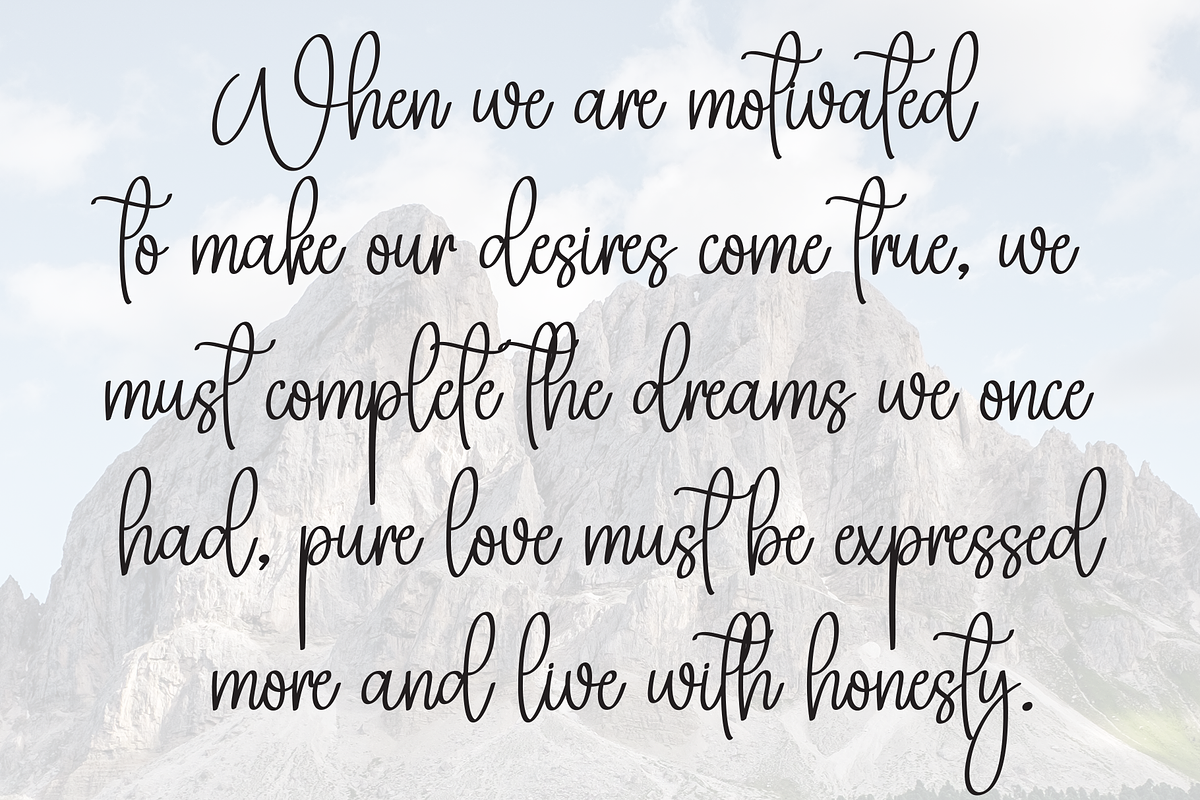 When we are motivated
to make our desires come true, we
must complete the dreams we once
had, pure love must be expressed
more and live with honesty.